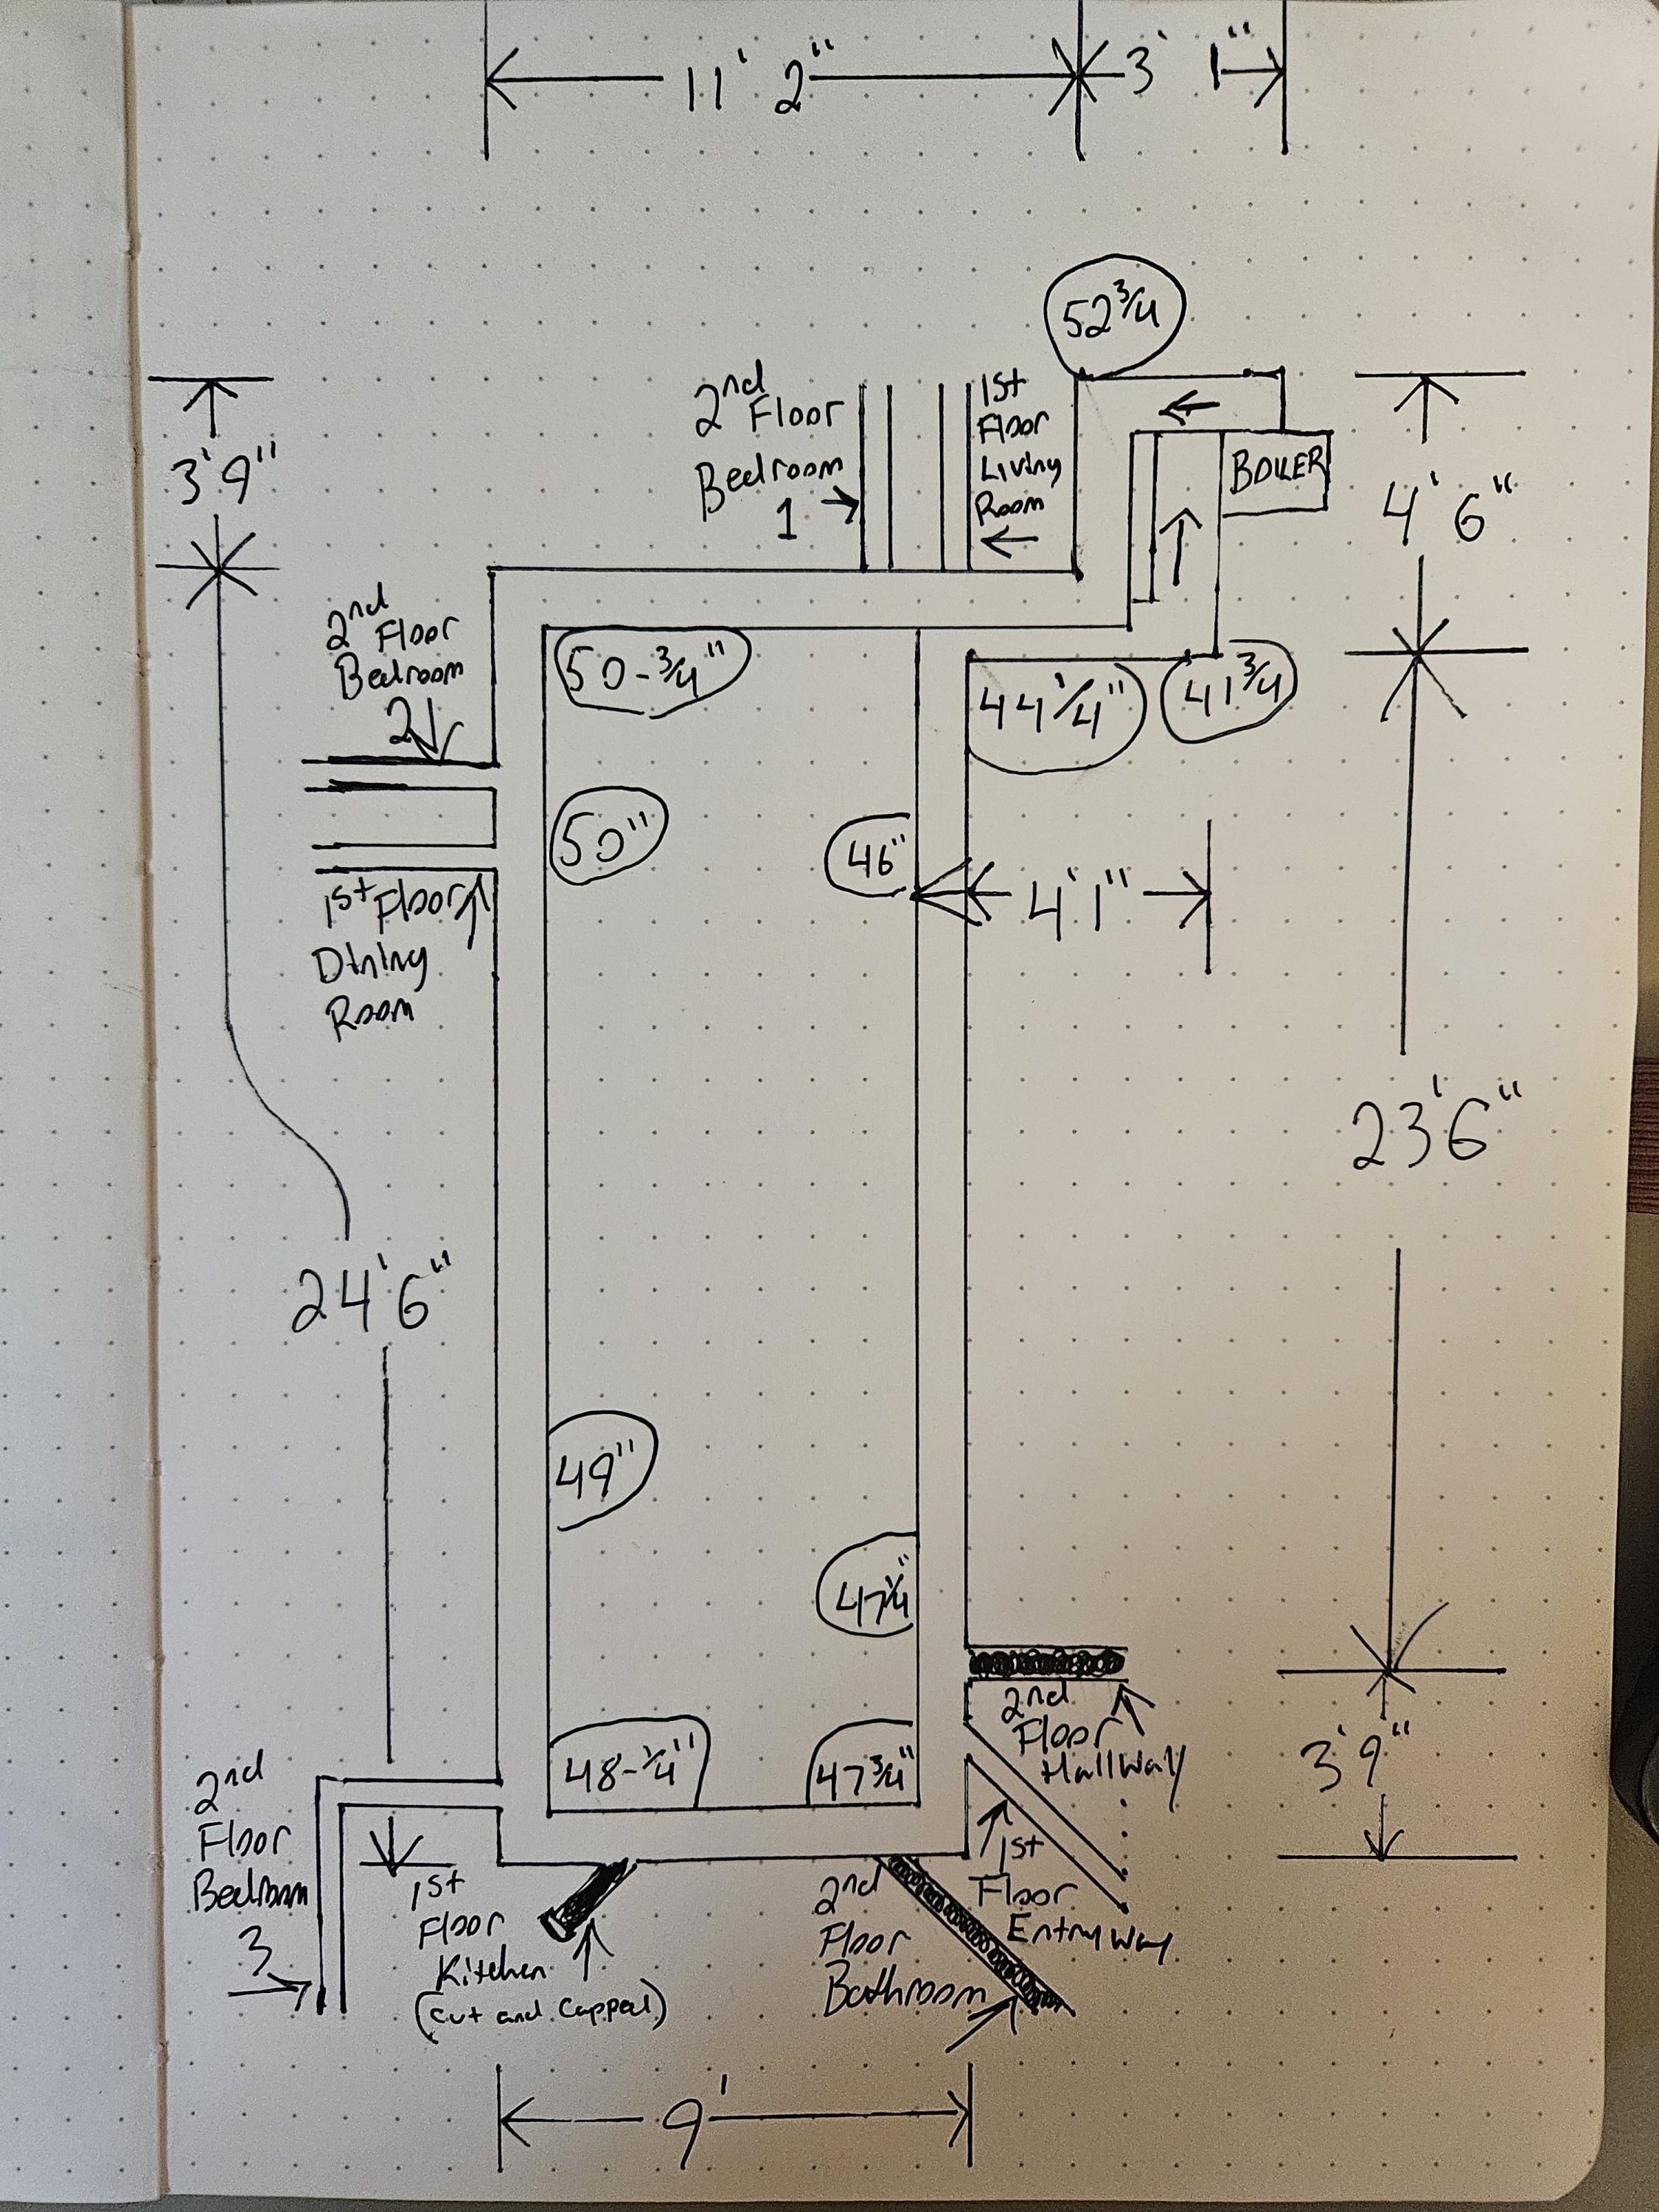 11' 2"
3' 1"
52 3/4
2nd
Floor
Bedroom
1
1st
Floor
Living
Room
BOILER
3' 9"
4' 6"
2nd
Floor
Bedroom
2
50-3/4"
44 1/4"
41 3/4
50"
46"
4' 1"
1st Floor
Dining
Room
23' 6"
24' 6"
49"
47 1/4"
48-1/4"
47 3/4"
2nd
Floor
Hallway
3' 9"
2nd
Floor
Bedroom
3
1st
Floor
Kitchen
(Cut and Capped)
2nd
Floor
Bathroom
1st
Floor
Entryway
9'